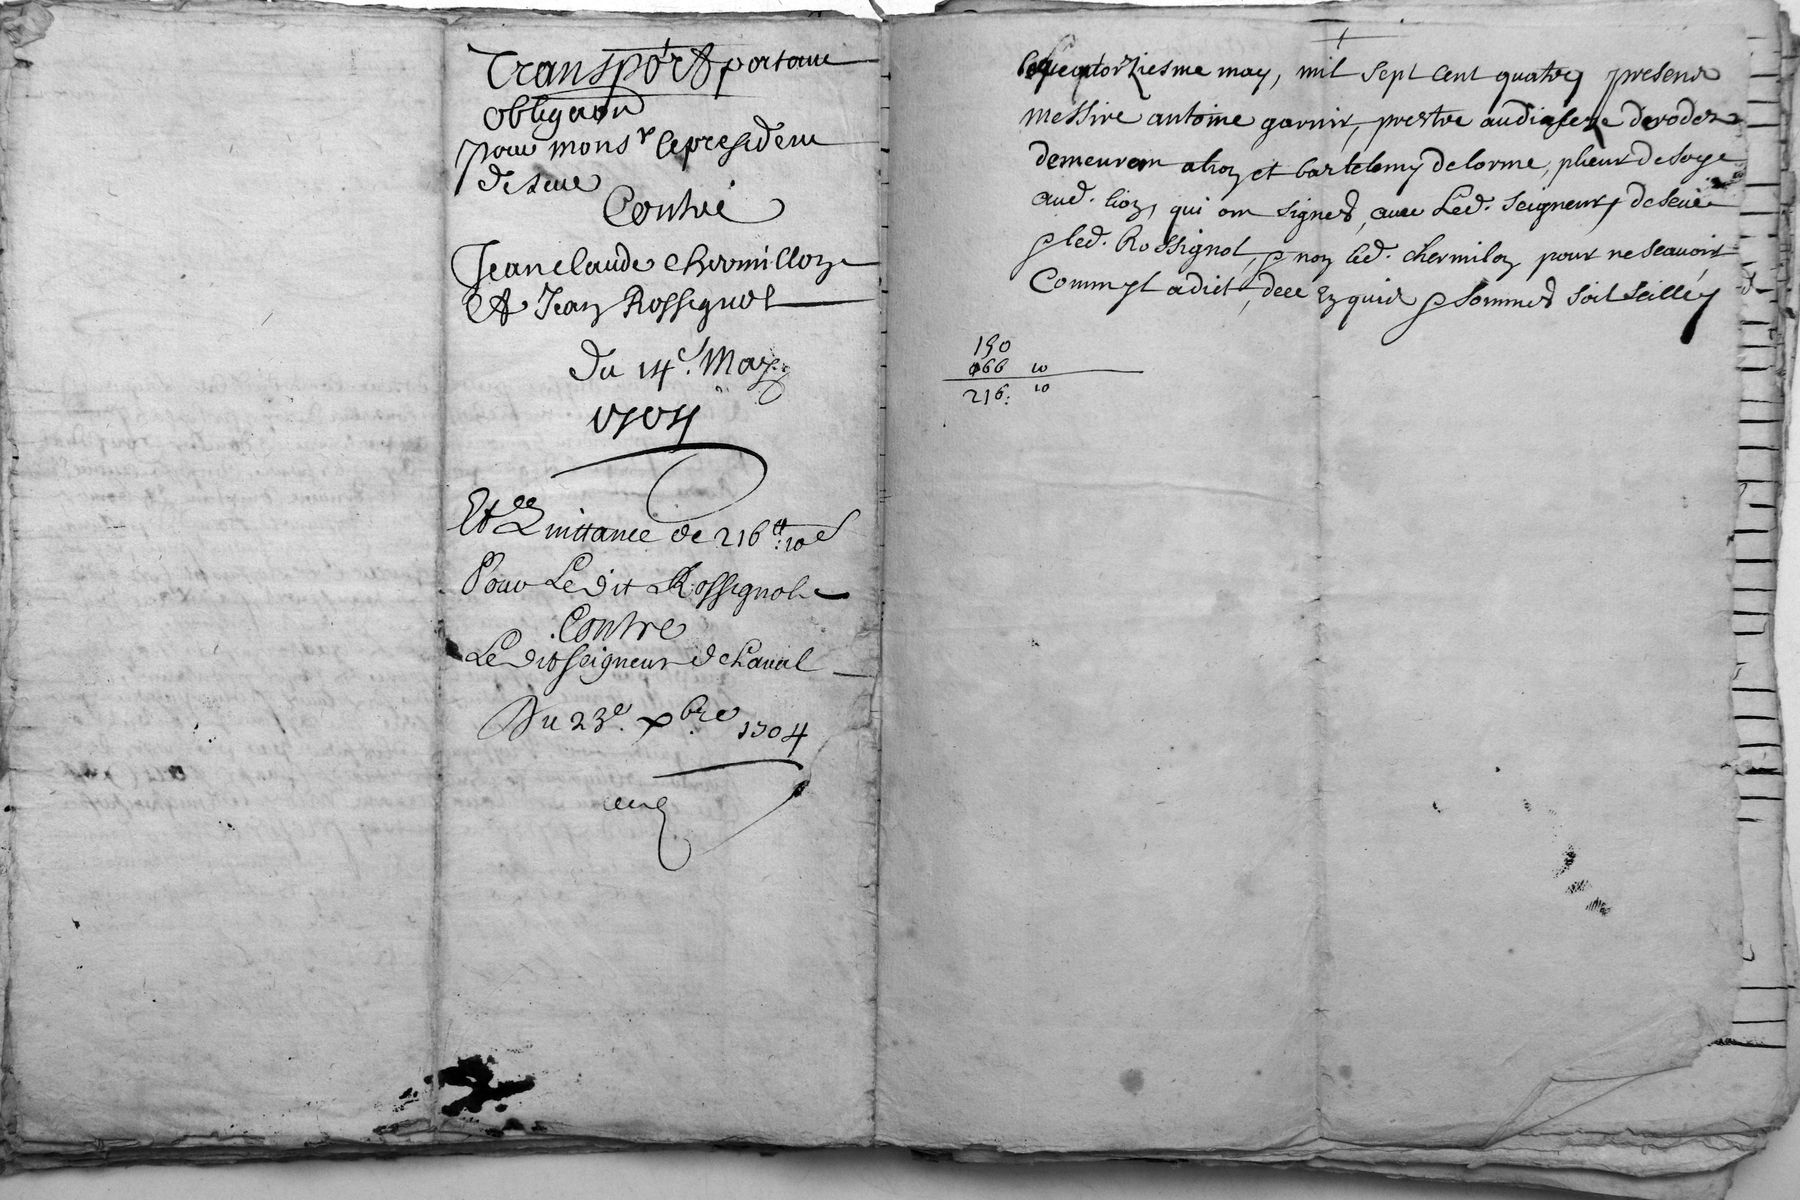 Transport portant
obligaon
pour monsr le president
de seue
Contre
Jean claude chermillon
et Jean Rossignol
du 14e. May
1704
Et Quittance de 216tt :10s
Pour Ledit Rossignol
Contre
Ledit seigneur de Laual
Du 23e. xbre 1704
le quatorziesme may, mil sept cent quatre, presens
messire antoine garnir, prestre au dioseze de rodez
demeurem a lion et bartelemy delorme, plieur de soye
aud. lion, qui om signes, auec Led. seigneur, de seue
& led. Rossignol, & non led. chermilon pour ne scauoir
comm jl a dict, de ce enquis & sommes soit seellé,
150
066 10
216: 10